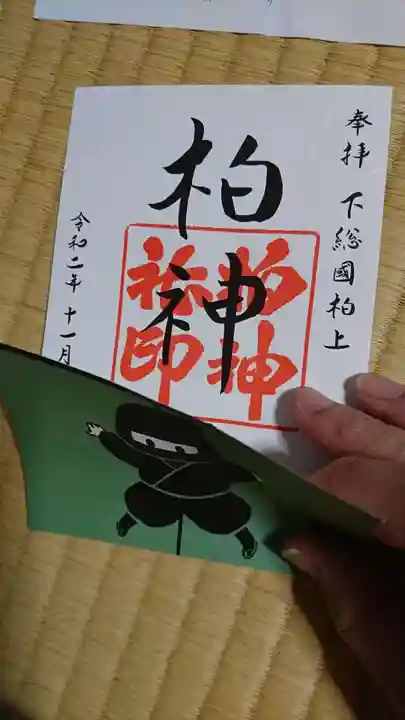 奉拝 下総國柏上
柏神
柏神
社印
令和二年 十一月